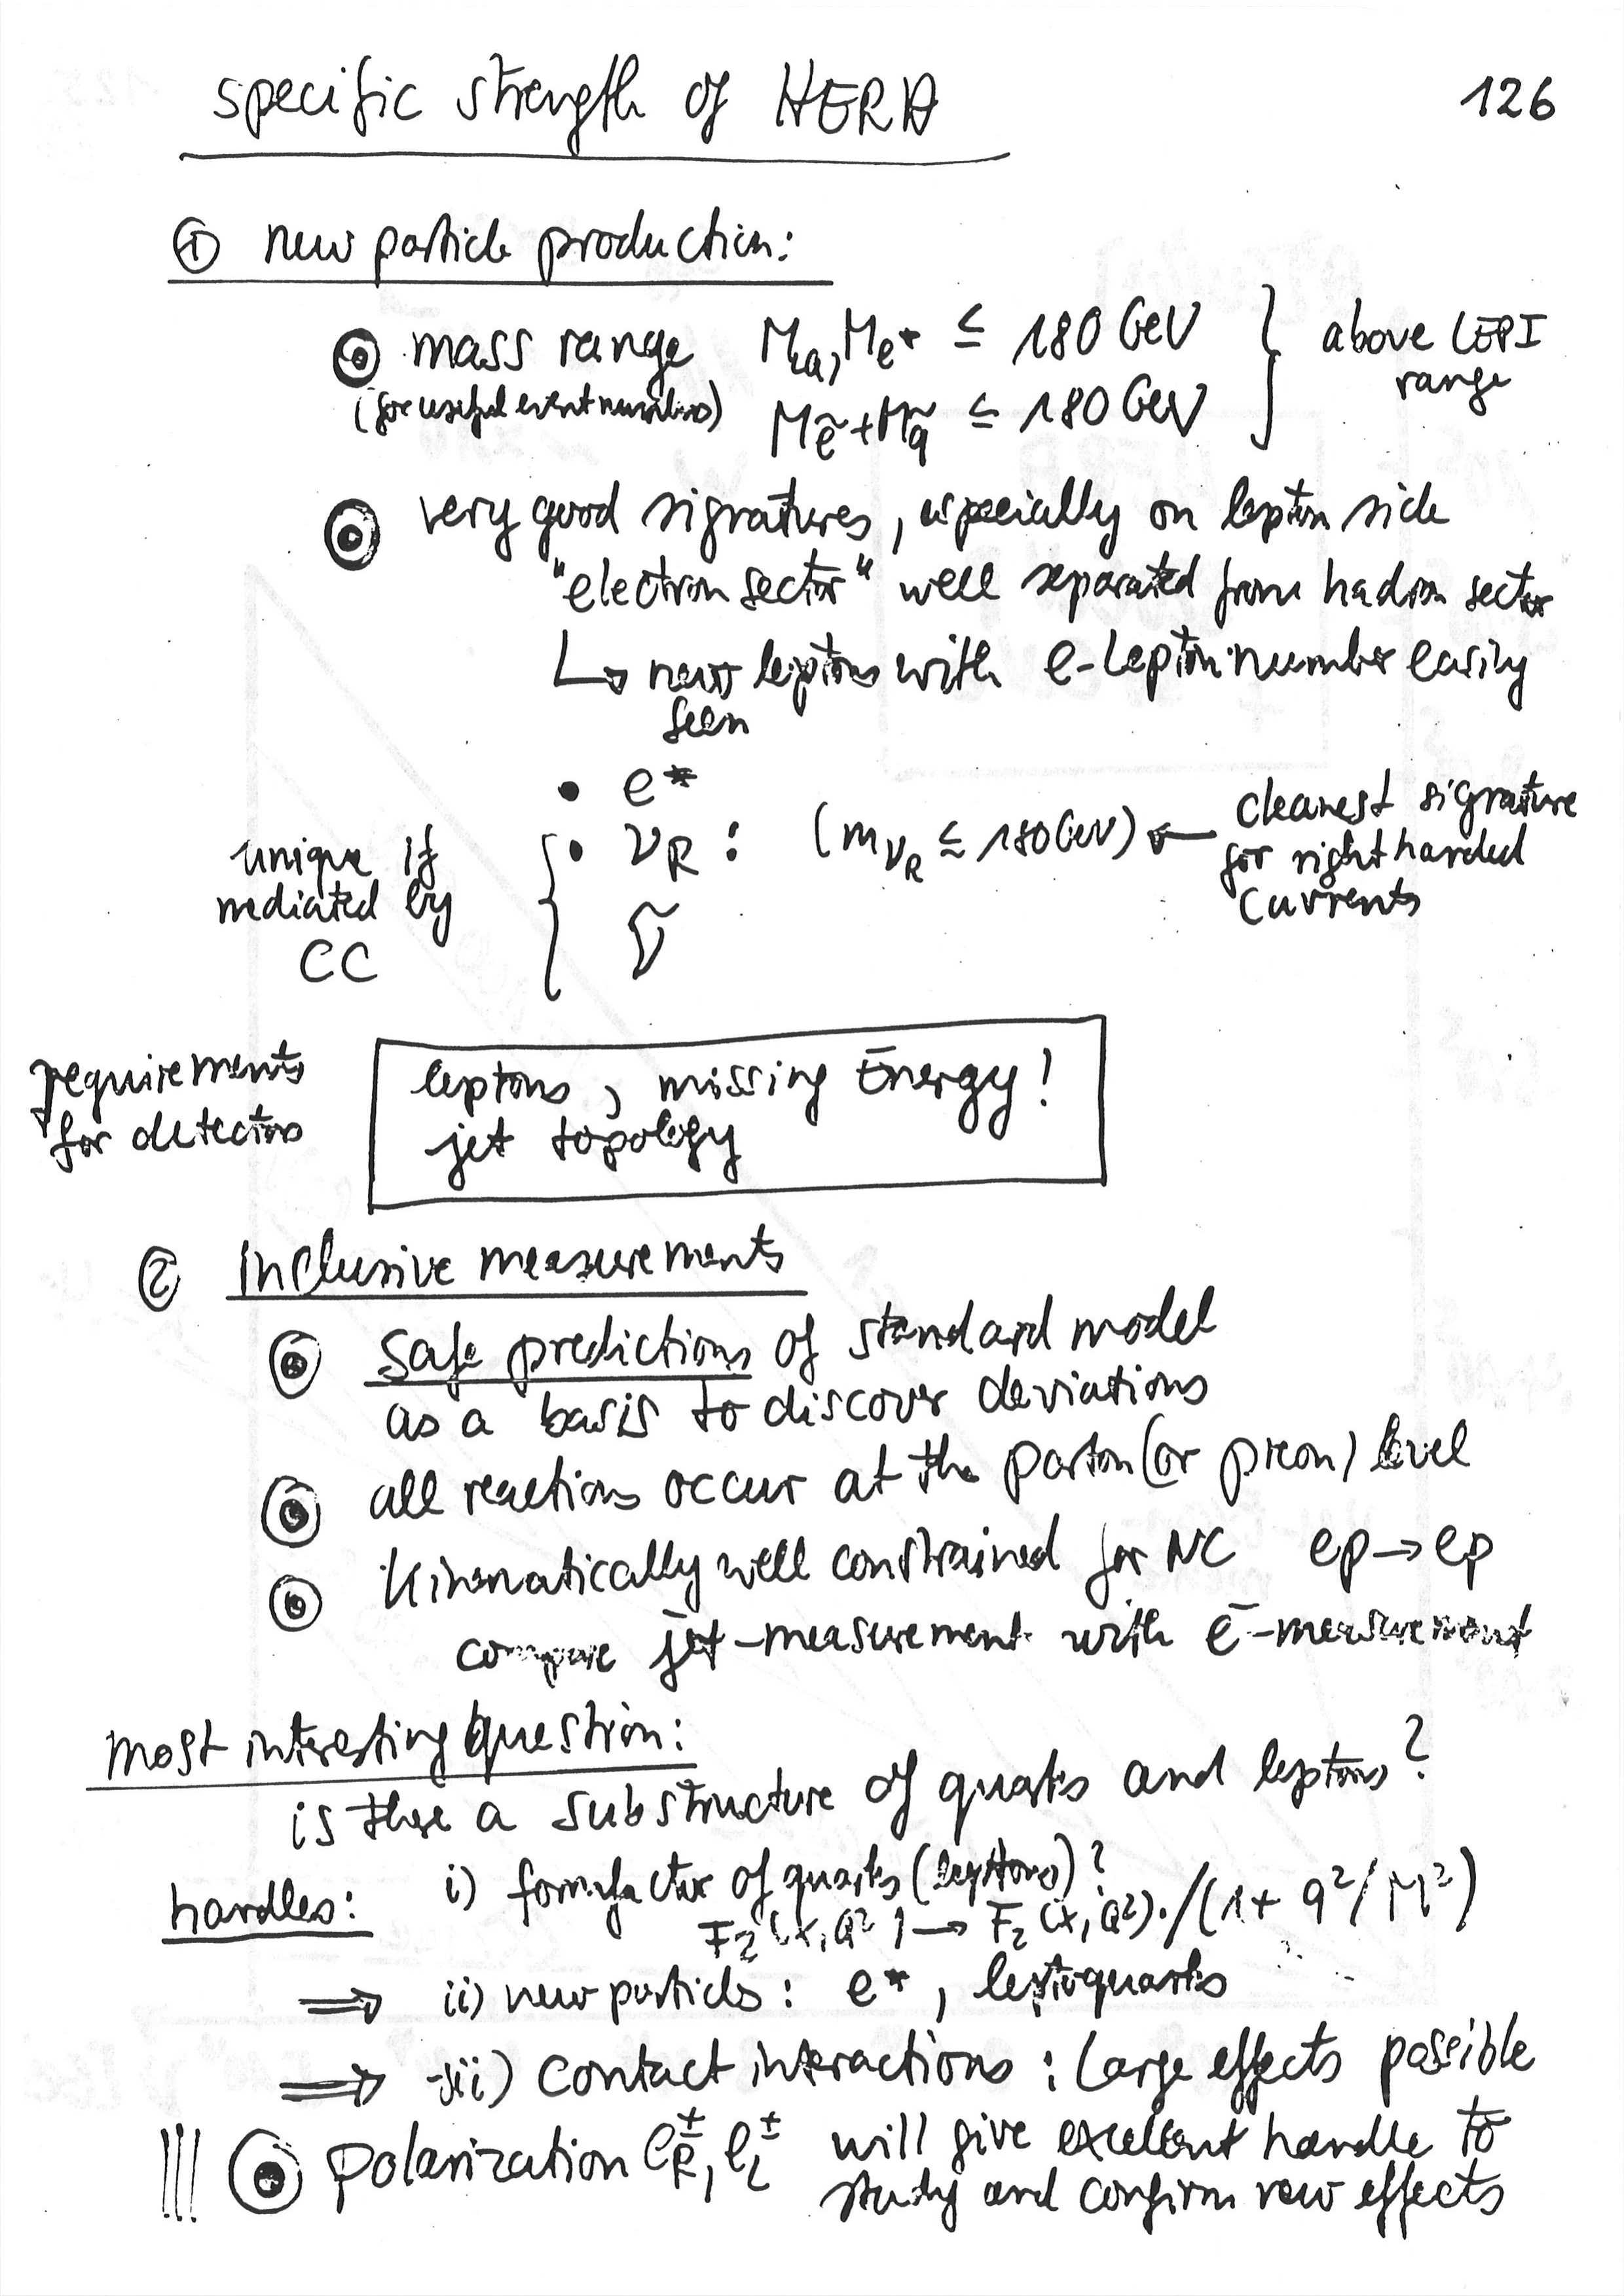 specific strength of HERA
126
① new particle production:
mass range M_LQ, M_e* ≤ 180 GeV } above LEP I
(for useful event numbers) M_ẽ + M_q̃ ≤ 180 GeV range
very good signatures, especially on lepton side
"electron sector" well separated from hadron sector
↳ new leptons with e-lepton number easily
seen
• e*
unique if mediated by CC { • ν_R : (m_νR ≤ 180 GeV) ← cleanest signature
for right handed
currents
ν̃
requirements
for detectors
leptons, missing Energy!
jet topology
② inclusive measurements
safe predictions of standard model
as a basis to discover deviations
all reactions occur at the parton (or preon) level
Kinematically well constrained for NC ep → ep
compare jet-measurement with e⁻-measurement
most interesting question:
is there a substructure of quarks and leptons?
handles: i) formfactor of quarks (leptons)?
F₂(x,Q²) → F₂(x,Q²)·/(1+q²/M²)
⇒ ii) new particles: e*, leptoquarks
⇒ iii) contact interactions: large effects possible
||| polarization e_R^±, e_L^± will give excellent handle to
study and confirm new effects